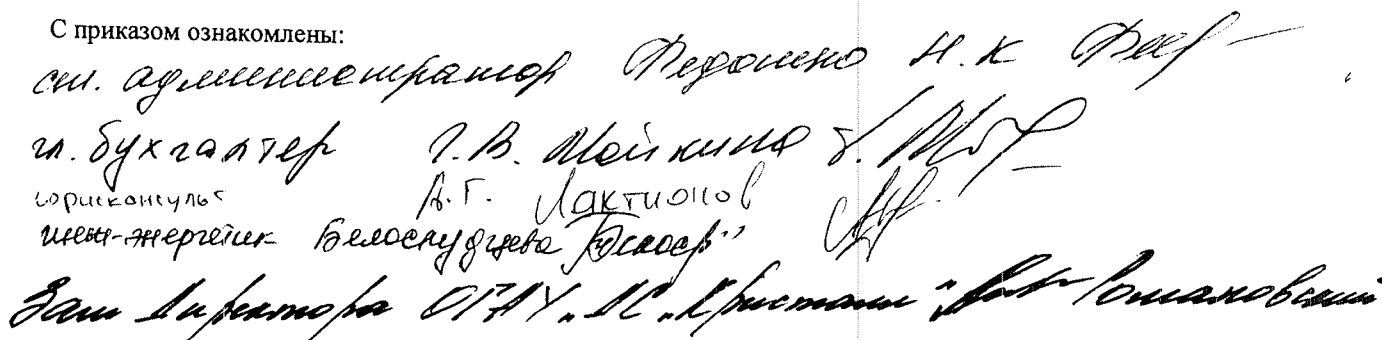 С приказом ознакомлены:
ст. администратор Федонено Н.К
гл. бухгалтер Г.В. Мойкина
юрисконсульт А.Г. Лактионов
инж-энергетик Белоскудцева
Зам Директора ОГАУ „ЛС „Кристалл" Ромаховский